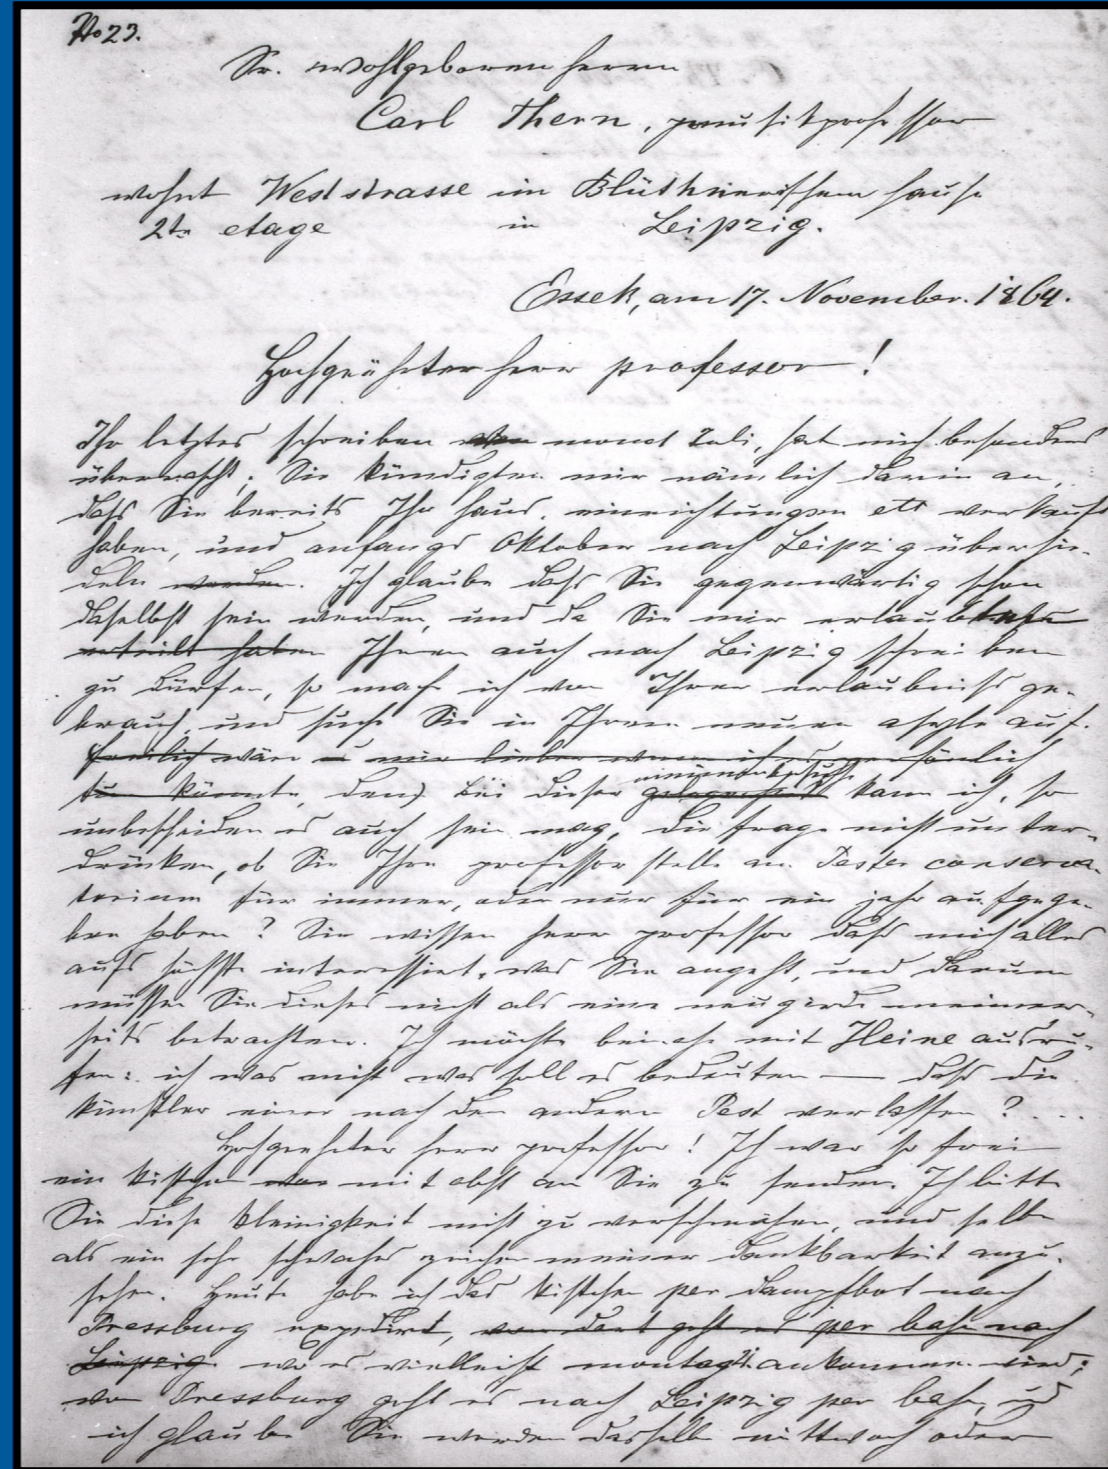 No 23.
Sr. wohlgeboren herrn
Carl Thern, musikprofessor
wohnt Weststrasse im Blüthnerischen hause
2te etage in Leipzig.
Essek, am 17. November. 1864.
Hochgeehrter herr professor!
Ihr letztes schreiben von monat Juli, hat mich besonders
überrascht; Sie kündigten mir nämlich darin an,
dass Sie bereits Ihr haus, einrichtungen etc verkauft
haben, und anfangs Oktober nach Leipzig übersie-
deln werden. Ich glaube dass Sie gegenwärtig schon
daselbst sein werden, und da Sie mir erlaubt
erteilt haben Ihnen auch nach Leipzig schreiben
zu dürfen, so mache ich von Ihrer erlaubniss ge-
brauch, und suche Sie in Ihrem neuen asyle auf.
freilich wäre es mir lieber wenn ich es persönlich
tun könnte, denn) bei dieser gelegenheit kann ich, so
unbescheiden es auch sein mag, die frage nicht unter-
drücken, ob Sie Ihre professor stelle am Pester conserva-
torium für immer, oder nur für ein jahr aufgege-
ben haben? Sie wissen herr professor dass mich alles
aufs höchste interessirt, was Sie angeht, und darum
müssen Sie dieses nicht als eine neugirde meiner-
seits betrachten. Ich möchte beinahe mit Heine ausru-
fen: ich was nicht was soll es bedeuten — dass die
künstler einer nach den andern Pest verlassen? ...
Hochgeehrter herr professor! Ich war so frei
ein kistchen mit obst an Sie zu senden. Ich bitte
Sie diese kleinigkeit nicht zu verschmähen, und selbe
als ein sehr schwaches zeichen meiner dankbarkeit anzu-
sehen. Heute habe ich das kistchen per dampfbot nach
Pressburg expedirt, von dort geht es per bahn nach
Leipzig. wo es vielleicht montags ankommen wird;
von Pressburg geht es nach Leipzig per bahn, und
ich glaube Sie werden dasselbe mittwoch oder